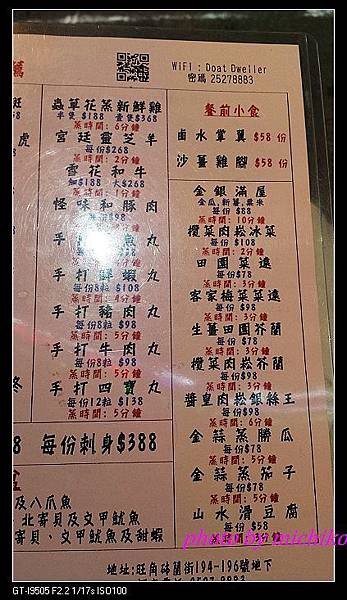 WiFi : Doat Dweller
密碼 25278883
虎
蟲草花蒸新鮮雞
半隻 $188 壹隻$368
蒸時間: 6分鐘
宮廷靈芝羊
每份$268
蒸時間: 2分鐘
雪花和牛
細$188 大$268
蒸時間: 1分鐘
怪味和豚肉
每份$98
手打 魚丸
手打鮮蝦丸
每份8粒 $108
蒸時間: 4分鐘
手打豬肉丸
每份8粒 $98
蒸時間: 5分鐘
手打牛肉丸
每份8粒 $98
蒸時間: 5分鐘
手打四寶丸
每份12粒 $138
蒸時間: 5分鐘
8 每份刺身$388
及八爪魚
北寄貝及文甲魷魚
寄貝、文甲魷魚及甜蝦
餐前小食
鹵水掌翼 $58 份
沙薑雞腳 $58 份
金銀滿屋
金瓜,新薯,粟米
每份 $88
蒸時間: 10分鐘
欖菜肉崧冰菜
每份 $108
蒸時間: 2分鐘
田園菜遠
每份$78
蒸時間: 3分鐘
客家梅菜菜遠
每份$98
蒸時間: 3分鐘
生薑田園芥蘭
每份 $78
蒸時間: 3分鐘
欖菜肉崧芥蘭
每份$98
蒸時間: 3分鐘
醬皇肉崧銀絲王
每份$98
蒸時間: 6分鐘
金蒜蒸勝瓜
每份$78
蒸時間: 5分鐘
金蒜蒸茄子
每份$78
蒸時間: 5分鐘
山水滑豆腐
每份 $58
蒸時間: 5分鐘
photo by michiko
地址:旺角砵蘭街194-196號地下
GT-I9505 F2.2 1/17s ISO100